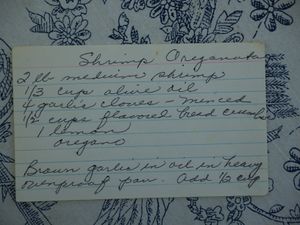 Shrimp Oreganata
2 lb medium shrimp
1/3 cup olive oil
4 garlic cloves - minced
1/2 cups flavored bread crumbs
1 lemon
oregano
Brown garlic in oil in heavy
ovenproof pan. Add 1/2 cup